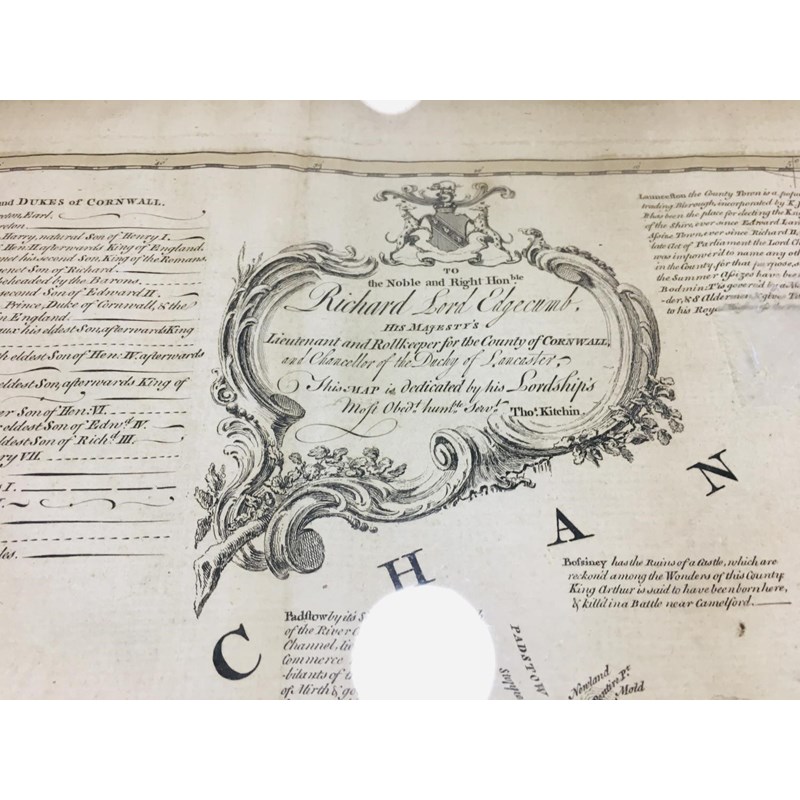 and DUKES of CORNWALL.
Earl.
Harry, natural Son of Henry I.
Hen. II afterwards King of England.
his second Son, King of the Romans.
Son of Richard
beheaded by the Barons.
second Son of Edward II.
Prince, Duke of Cornwall, & the
in England.
his eldest Son, afterwards King
eldest Son of Hen. IV. afterwards
eldest Son, afterwards King of
Son of Hen. VI.
eldest Son of Edwd. IV.
eldest Son of Richd. III.
VII.
I.
TO
the Noble and Right Honble
Richard Lord Edgecumb,
HIS MAJESTY'S
Lieutenant and Rollkeeper for the County of CORNWALL,
and Chancellor of the Duchy of Lancaster,
This MAP is dedicated by his Lordship's
Most Obedt. humble Servt. Thos. Kitchin
Launceston the County Town is a
trading Bborough, incorporated by K.
has been the place for electing the
of the Shire, ever since
Assize Town, ever since Richard
late Act of Parliament the Lord
was impower'd to name any
in the County, for that purpose,
the Summer Assizes have
Bodmin. T is govern'd by a
& 8 Aldermen &
to his
C H A N
Bossiney has the Ruins of a Castle, which are
reckon'd among the Wonders of this County
King Arthur is said to have been born here,
& kill'd in a Battle near Camelford.
Padstow by its
of the River
Channel,
Commerce
bitants of
of Mirth &
PADSTOW
Newland
Pentire Pt.
Mold